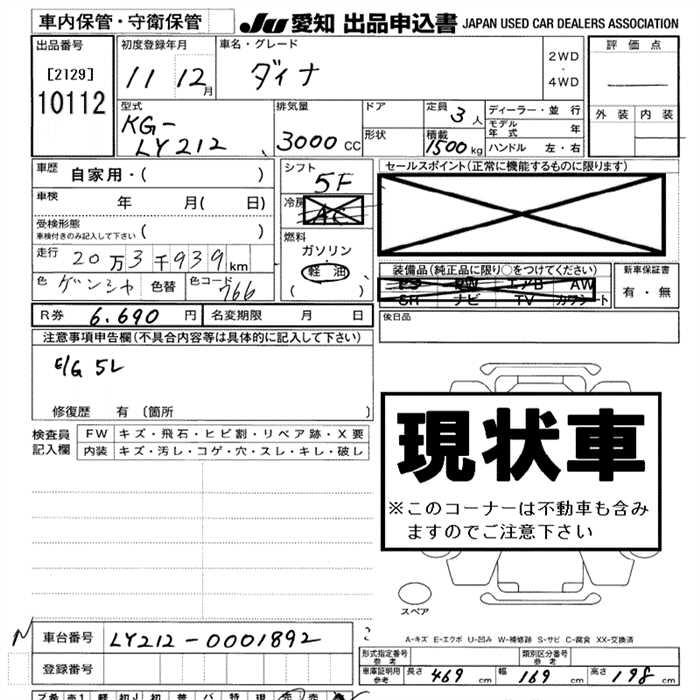 車内保管・守衛保管
JU 愛知 出品申込書 JAPAN USED CAR DEALERS ASSOCIATION
出品番号
[2129]
10112
初度登録年月
11 12月
車名・グレード
ダイナ
2WD
・
4WD
評価点
外装 内装
型式
KG-
LY212
排気量
3000 CC
ドア
形状
定員 3人
積載
1500 kg
ディーラー・並行
モデル
年式 年
ハンドル 左・右
車歴
自家用・( )
車検 年 月( 日)
受検形態
車検付きのみ記入して下さい ( )
走行 20万3千939km
色 ゲンシャ 色替 色コード 766
シフト
5F
冷房
AC
燃料
ガソリン・
軽油
( )
セールスポイント(正常に機能するものに限ります)
装備品(純正品に限り○をつけてください)
PS PW エアB AW
SR ナビ TV カワシート
新車保証書
有・無
R券 6.690 円 名変期限 月 日
後日品
注意事項申告欄(不具合内容等は具体的に記入して下さい)
E/G 5L
修復歴 有(箇所 )
検査員
記入欄
FW キズ・飛石・ヒビ割・リペア跡・X要
内装 キズ・汚し・コゲ・穴・スレ・キレ・破し
現状車
※このコーナーは不動車も含み
ますのでご注意下さい
スペア
A-キズ E-エクボ U-凹み W-補修跡 S-サビ C-腐食 XX-交換済
車台番号 LY212-0001892
登録番号
型式指定番号
参考
類別区分番号
参考
車庫証明用
参考
長さ 469 cm 幅 169 cm 高さ 198 cm